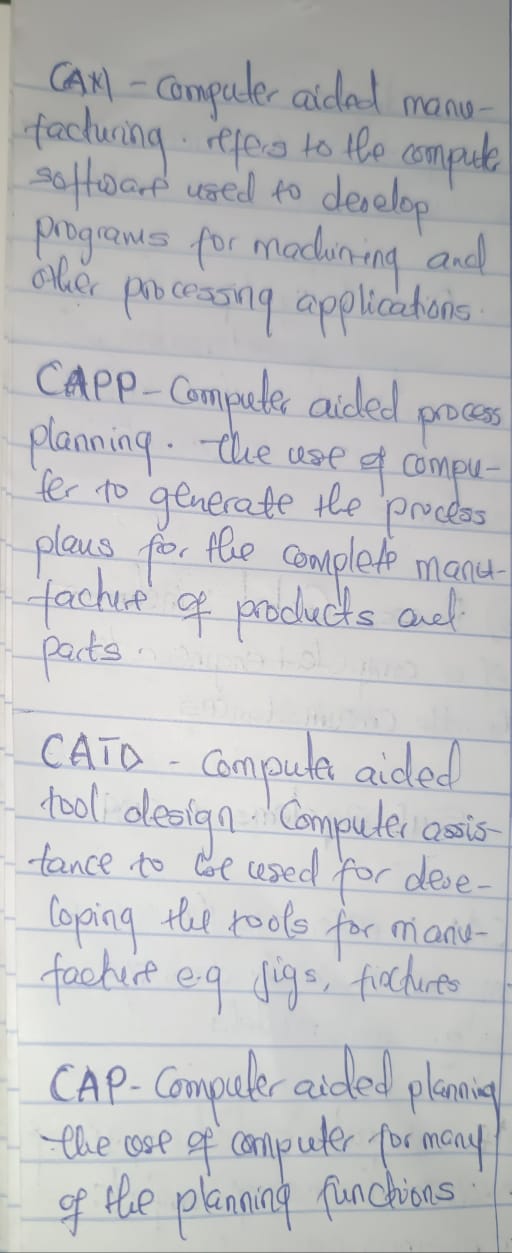 CAM - Computer aided manu-
facturing. refers to the compute
software used to develop
programs for machining and
other processing applications.
CAPP - Computer aided process
planning. The use of compu-
ter to generate the process
plans for the complete manu-
facture of products and
parts.
CATD - Computer aided
tool design. Computer assis-
tance to be used for deve-
loping the tools for manu-
facture e.g jigs, fixtures
CAP - Computer aided planning
the use of computer for many
of the planning functions.